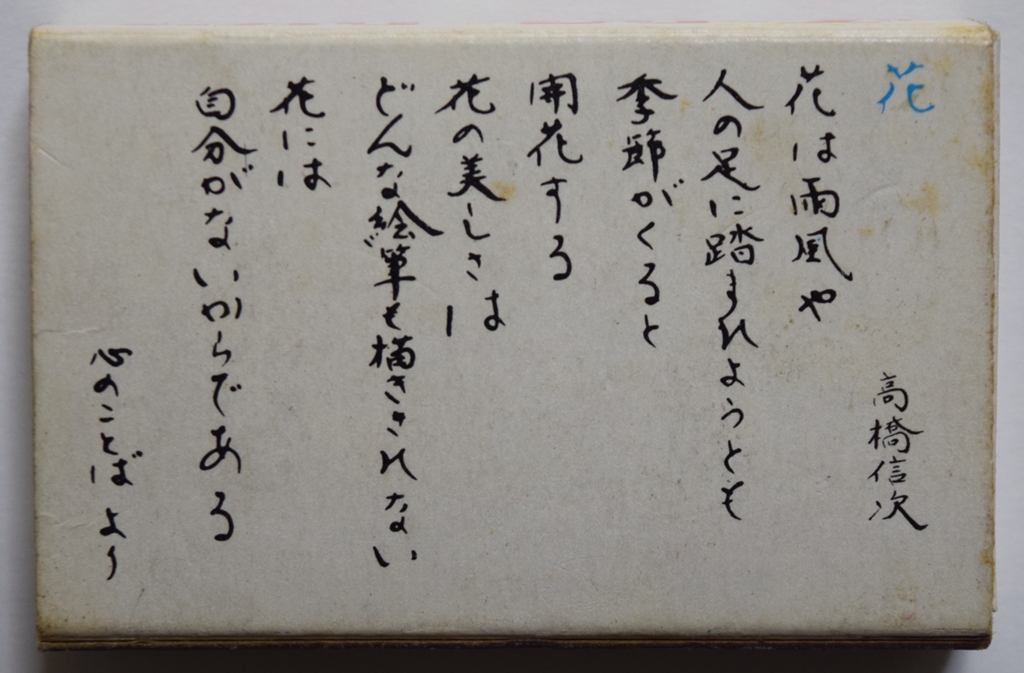 花
高橋信次
花は雨風や
人の足に踏まれようとも
季節がくると
開花する
花の美しさは
どんな絵筆も描ききれない
花には
自分がないからである
心のことばより